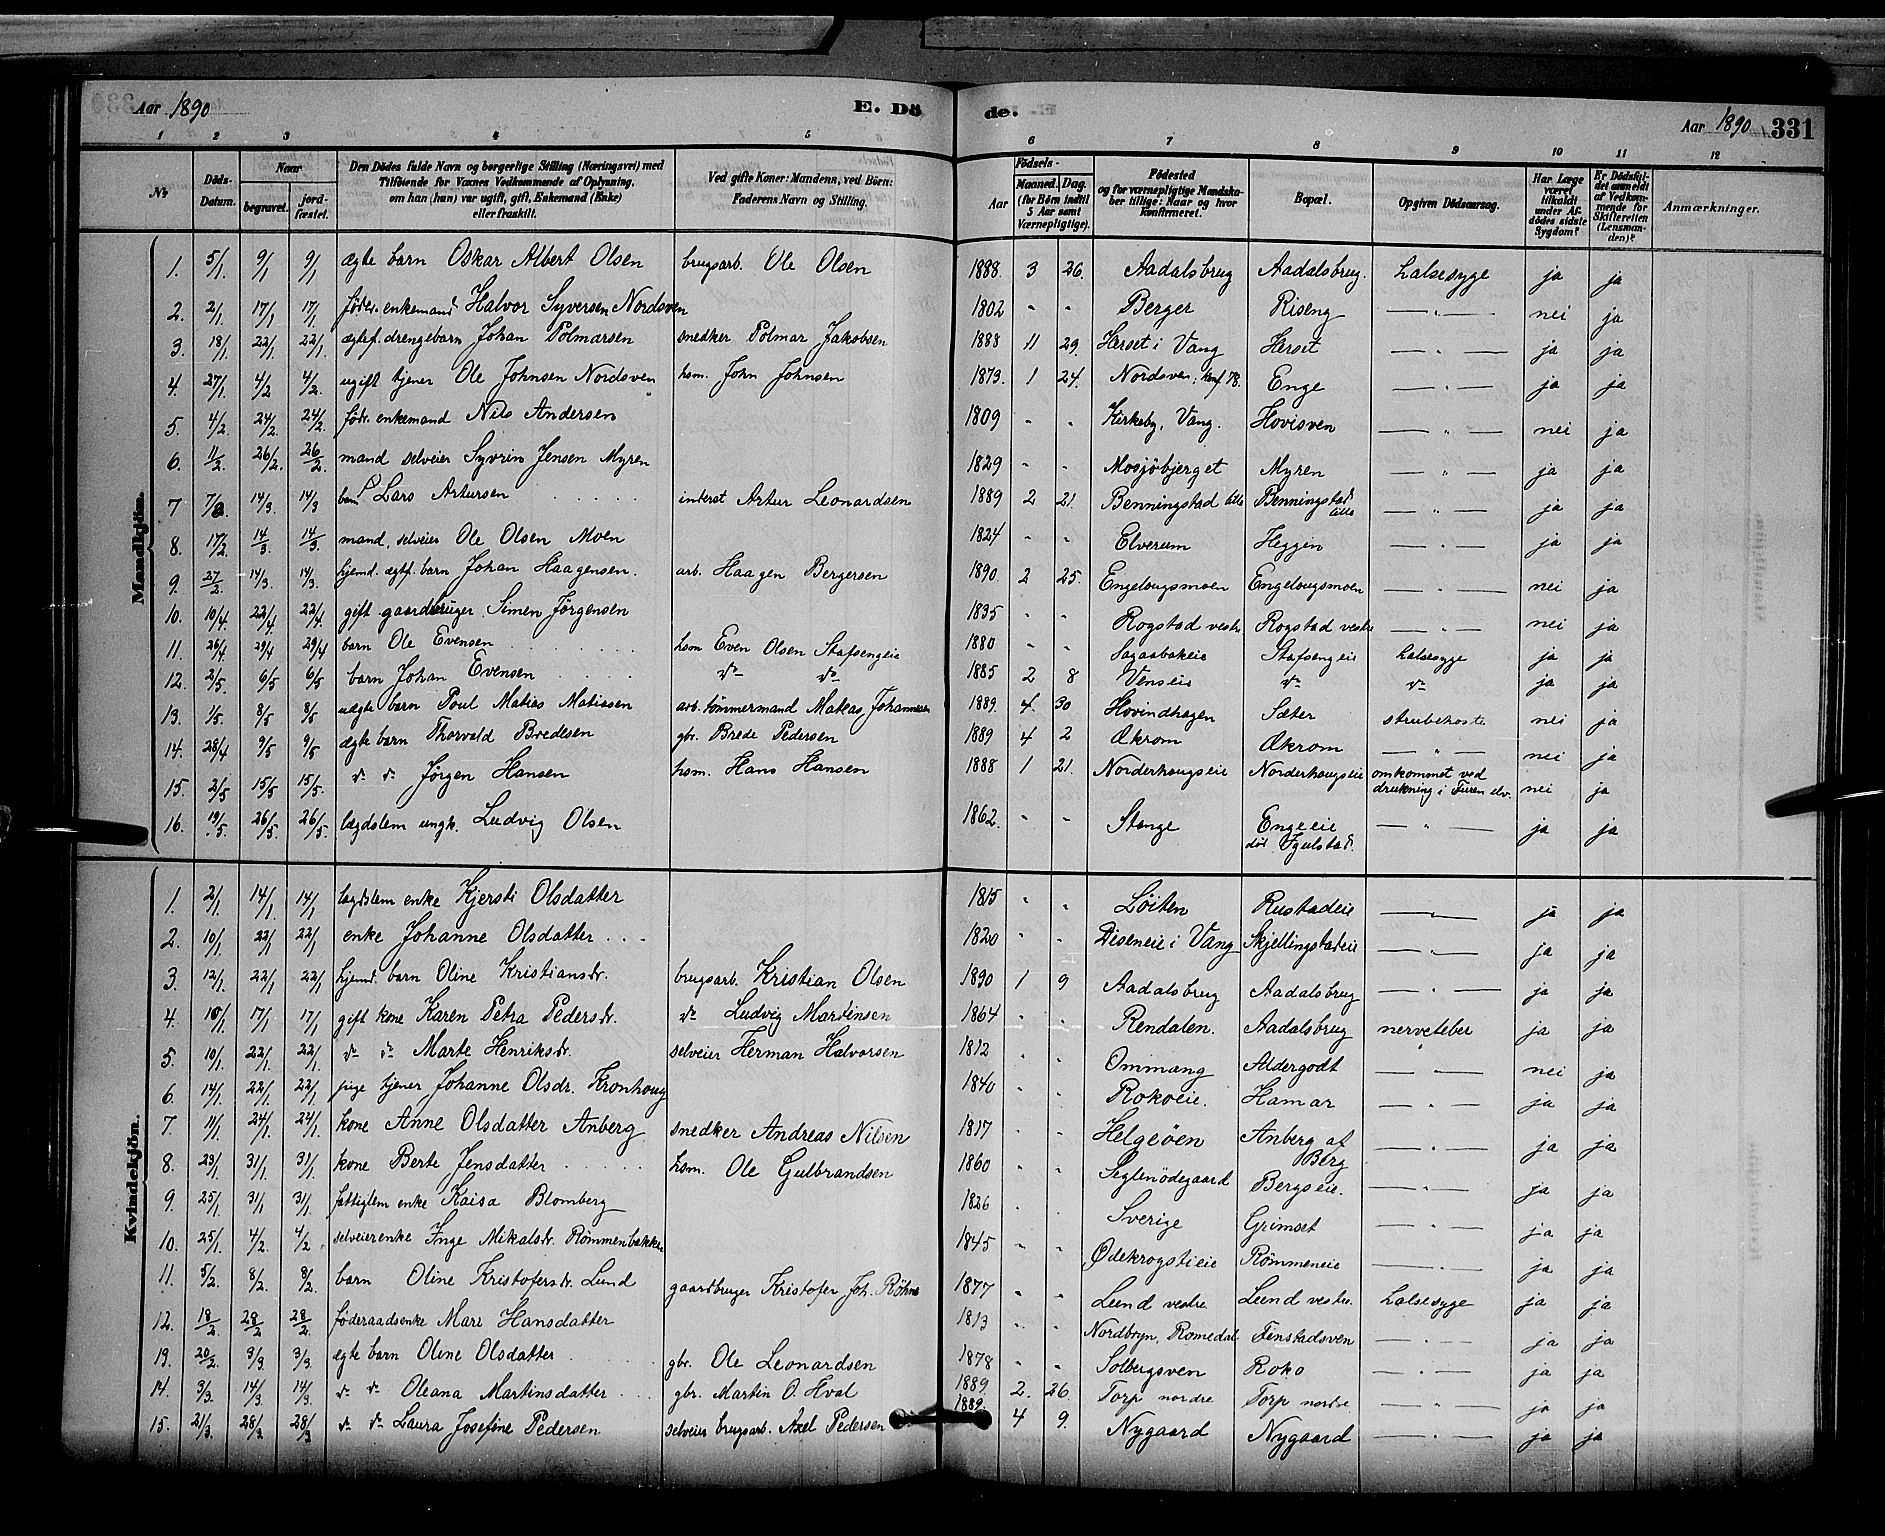 Aar 1890 E. Dö de. Aar 1890 331
1 2 3 4 5 6 7 8 9 10 11 12
No Döds-Datum. Naar begravet. jordfæstet. Den Dödes fulde Navn og borgerlige Stilling (Næringsvei) med Tilföiende for Voxnes Vedkommende af Oplysning, om han (hun) var ugift, gift, Enkemand (Enke) eller fraskilt. Ved gifte Koner: Mandens, ved Börn: Faderens Navn og Stilling. Födsels- Aar Maaned. Dag. (for Börn indtil 5 Aar samt Værnepligtige). Födested og for værnepligtige Mandskaber tillige: Naar og hvor konfirmeret. Bopæl. Opgiven Dödsaarsag. Har Læge været tilkaldt under Afdödes sidste Sygdom? Er Dödsfaldet anmeldt af Vedkommende for Skifteretten (Lensmanden)? Anmærkninger.
Mandkjön.
1. 5/1. 9/1 9/1 ægte barn Oskar Albert Olsen brugsarb. Ole Olsen 1888. 3 26. Aadalsbrug Aadalsbrug. halsesyge ja ja
2. 2/1. 17/1 17/1. föder. enkemand Halvor Syversen Nordsven 1802 " " Berger Riseng — " — nei ja
3. 18/1. 22/1 22/1. ægtef. drengebarn Johan Polmarsen snedker Polmar Jakobsen 1888 11 29. Hærset i Vang Hærset — " — ja ja
4. 27/1. 4/2 4/2. ugift tjener Ole Johnsen Nordsven hsm. John Johnsen 1873. 1 24. Nordsven; konf 78. Enge — " — ja ja
5. 4/2. 24/2. 24/2. födr. enkemand Nils Andersen 1809 " " Kirkeby, Vang. Hovisven — " — nei ja
6. 11/2. 26/2. 26/2. mand selveier Syvrin Jensen Myren 1829 " " Mosjöbjerget Myren — " — ja ja
7 7/3. 14/3 14/3 barn Lars Artursen inderst Artur Leonardsen 1889 2 21. Benningstad lille Benningstad lille — " — ja ja
8. 17/2. 14/3. 14/3 mand, selveier Ole Olsen Moen 1824 " " Elverum Heggen — " — ja ja
9. 27/2. 14/3. 14/3. hjemd. ægtf. barn Johan Haagensen. arb. Haagen Bergersen 1890. 2 25. Engelougsmoen Engelougsmoen — " — nei ja
10. 10/4. 22/4 22/4. gift gaardbruger Simen Jörgensen 1835 " " Rogstad vestre Rogstad vestre — " — nei ja
11. 26/4. 29/4 29/4 barn Ole Evensen hsm Even Olsen Stafsengeie 1880 " " Sagaabakeie Stafsengeie halsesyge ja ja
12. 2/5. 6/5 6/5 barn Johan Evensen do do 1885 2 8 Venseie do do ja ja
13. 1/5. 8/5 8/5. uægte barn Poul Matias Matiasen arb. tömmermand Matias Johannesen 1889. 4. 30 Hovindhagen Sæter strubehoste nei ja
14. 28/4 9/5 9/5 ægte barn Thorvald Bredesen gbr. Brede Pedersen 1889 4 2 Ækrom Ækrom — " — nei ja
15. 2/5 15/5 15/5. do do Jörgen Hansen hsm. Hans Hansen 1888 1 21. Norderhougseie Norderhougseie omkommet ved drukning i Furen elv. nei ja
16. 19/5. 26/5 26/5. lægdslem ungk. Ludvig Olsen 1862. " " Stange Engeeie död Fjulstad. — " — ja ja
Kvindekjön.
1. 2/1. 14/1 14/1 lægdslem enke Kjersti Olsdatter 1815 " " Löiten Rustadeie — " — ja ja
2. 10/1. 22/1 22/1 enke Johanne Olsdatter 1820 " " Diseneie i Vang Skjellingstadeie — " — ja ja
3. 12/1. 22/1 22/1 hjemd. barn Oline Kristiansdr. brugsarb. Kristian Olsen 1890 1 9 Aadalsbrug Aadalsbrug — " — ja ja
4. 10/1. 17/1 17/1 gift kone Karen Petra Pedersdr. do Ludvig Martinsen 1864 " " Rendalen. Aadalsbrug nervefeber ja ja
5. 10/1. 22/1 22/1. do do Marte Henriksdr. selveier Herman Halvorsen 1812 " " Ommang Aldergodt — " — nei ja
6. 14/1. 22/1 22/1. pige tjener Johanne Olsdr. Kronhoug 1840 " " Rokoeie. Hamar — " — ja ja
7. 11/1. 24/1. 24/1. kone Anne Olsdatter Anberg snedker Andreas Nilsen 1817 " " Helgeöen Anberg af Berg — " — ja ja
8. 23/1. 31/1 31/1. kone Berte Jensdatter hsm. Ole Gulbrandsen 1860 " " Seglnödegaard Bergseie. — " — ja ja
9. 25/1. 31/1 31/1. fattiglem enke Kaisa Blomberg 1826 " " Sverige Grimset — " — ja ja
10. 25/1. 4/2. 4/2. selveierenke Inge Mikalsdr. Römmenbakken 1845 " " Ödekrogstieie Römmeneie — " — ja ja
11. 5/2. 8/2. 8/2. barn Oline Kristofersdr. Lund gaardbruger Kristofer Joh. Röhne 1877 " " Lund vestre Lund vestre. halsesyge ja ja
12. 18/2. 28/2 28/2. föderaadsenke Mari Hansdatter 1813 " " Nordbryn, Romedal Finstadsven — " — ja ja
13. 20/2. 3/3 3/3. ægte barn Oline Olsdatter gbr. Ole Leonardsen 1878 " " Solbergsven Roko — " — ja ja
14. 3/3. 14/3 14/3 do do Oleana Martinsdatter gbr. Martin O. Hval 1889. 2. 26 Torp nordre Torp nordre — " — ja ja
15. 21/3. 28/3 28/3 do do Laura Josefine Pedersen selveier brugsarb. Axel Pedersen 1889. 4 9. Nygaard Nygaard ja ja